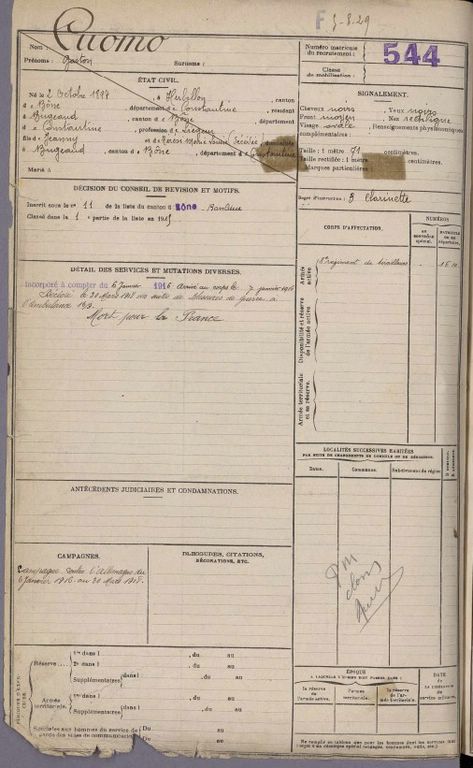 F 3-8-29
Nom : Cuomo
Prénoms : Gaston Surnoms :
Numéro matricule du recrutement : 544
Classe de mobilisation :
ÉTAT CIVIL.
Né le 2 Octobre 1897, à Herbillon, canton
d e Bône, département d e Constantine, résidant
à Bugeaud, canton d e Bône, département
d e Constantine, profession de
fils de Jeanny et de
à Bugeaud, canton d e Bône, département d e Constantine
Marié à
SIGNALEMENT.
Cheveux noirs Yeux noirs
Front moyen Nez rectiligne
Visage ovale Renseignements physionomiques
complémentaires :
Taille : 1 mètre 71 centimètres.
Taille rectifiée : 1 mètre centimètres.
Marques particulières :
DÉCISION DU CONSEIL DE REVISION ET MOTIFS.
Inscrit sous le n° 11 de la liste du canton d BÔNE - Banlieue
Classé dans la 1 e partie de la liste en 1915
Degré d'instruction : 3 Clarinette
CORPS D'AFFECTATION.
NUMÉROS
AU CONTRÔLE spécial.
MATRICULE OU AU RÉPERTOIRE.
Armée active
régiment de tirailleurs
Disponibilité et réserve de l'armée active.
Armée territoriale et sa réserve.
DÉTAIL DES SERVICES ET MUTATIONS DIVERSES.
Incorporé à compter du 6 janvier 1916 arrivé au corps le 7 janvier 1916
Décédé le 30 Mars 1918 des suites de blessures de guerre à
l'Ambulance
Mort pour la France
LOCALITÉS SUCCESSIVES HABITÉES
PAR SUITE DE CHANGEMENTS DE DOMICILE OU DE RÉSIDENCE.
Dates.
Communes.
Subdivision de région
D. domicile R. résidence.
ANTÉCÉDENTS JUDICIAIRES ET CONDAMNATIONS.
CAMPAGNES.
Campagne contre l'Allemagne du
6 janvier 1916 au 30 Mars 1918.
BLESSURES, CITATIONS,
DÉCORATIONS, ETC.
PÉRIODES D'EXERCICES
Réserve
1re dans l , du au
2e dans l , du au
Supplémentaires dans l , du au
Armée territoriale.
1re dans l , du au
Supplémentaires dans l , du au
Du au
Du au
ÉPOQUE
À LAQUELLE L'HOMME DOIT PASSER DANS :
la réserve de l'armée active.
l'armée territoriale.
la réserve de l'armée territoriale.
DATE
de la libération du service militaire.